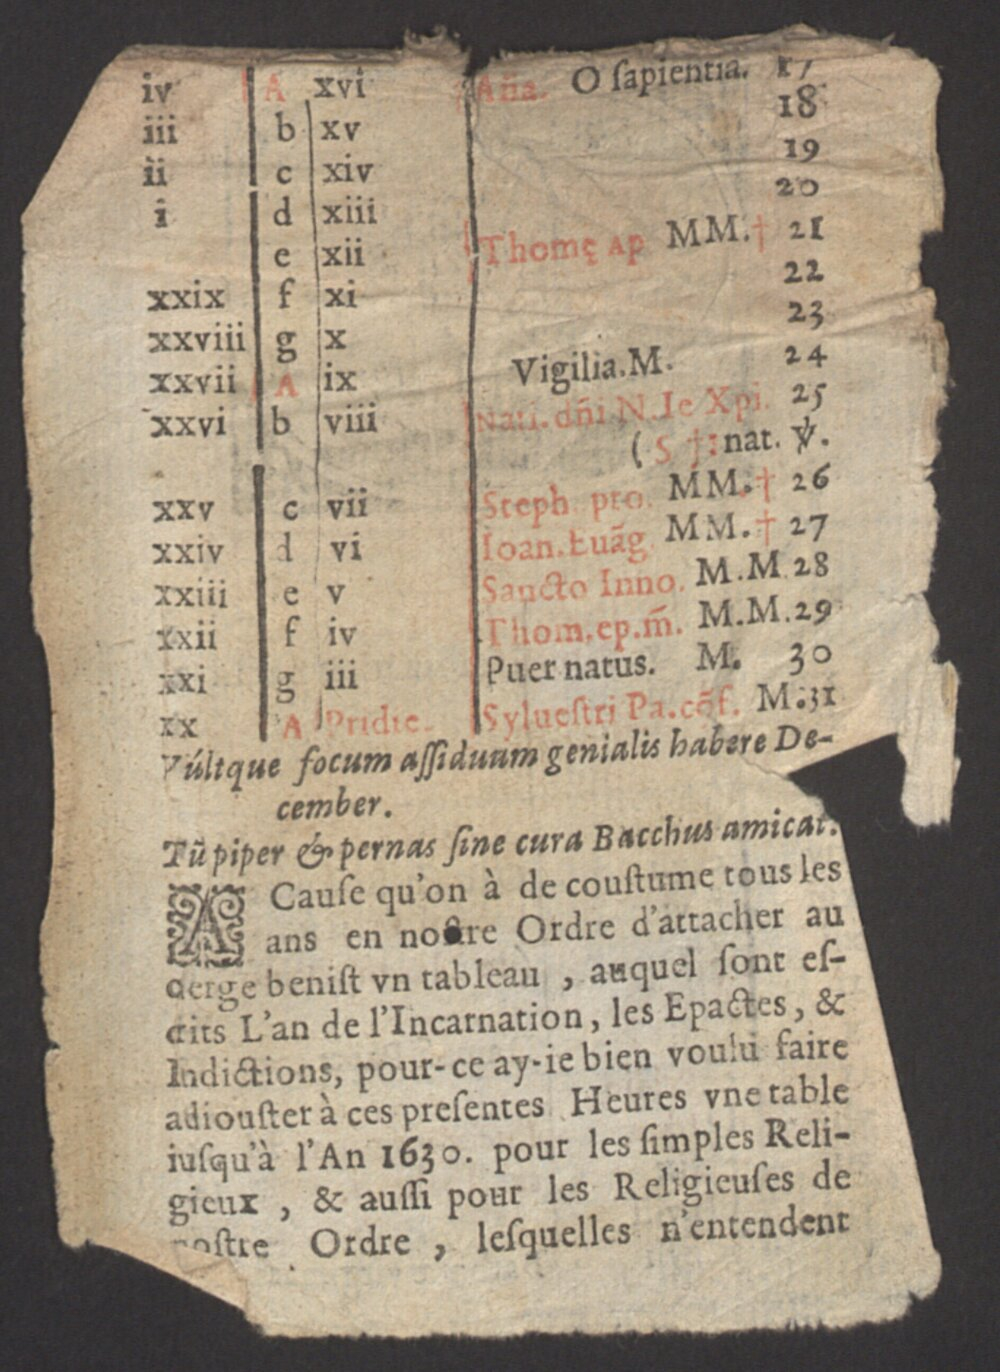 iv A xvi Aña. O ſapientia. 17
iii b xv 18
ii c xiv 19
i d xiii 20
e xii Thomę ap MM.† 21
xxix f xi 22
xxviii g x 23
xxvii A ix Vigilia.M. 24
xxvi b viii Nati.dñi N.Ie Xpi. 25
( S †:nat. V.
xxv c vii Steph. pro. MM.† 26
xxiv d vi Ioan.Euãg MM.† 27
xxiii e v Sancto Inno. M.M 28
xxii f iv Thom.ep.m̃. M.M.29
xxi g iii Puer natus. M. 30
xx A Pridie. Sylueſtri Pa.cõf. M.31
Vúltque focum aſſiduum genialis habere De-
cember.
Tũ piper & pernas ſine cura Bacchus amicat.
A Cauſe qu'on à de couſtume tous les
ans en noſtre Ordre d'attacher au
cierge beniſt vn tableau , auquel ſont eſ-
crits L'an de l'Incarnation, les Epactes, &
Indictions, pour-ce ay-ie bien voulu faire
adiouſter à ces preſentes Heures vne table
iuſqu'à l'An 1630. pour les ſimples Reli-
gieux , & auſſi pour les Religieuſes de
noſtre Ordre , leſquelles n'entendent